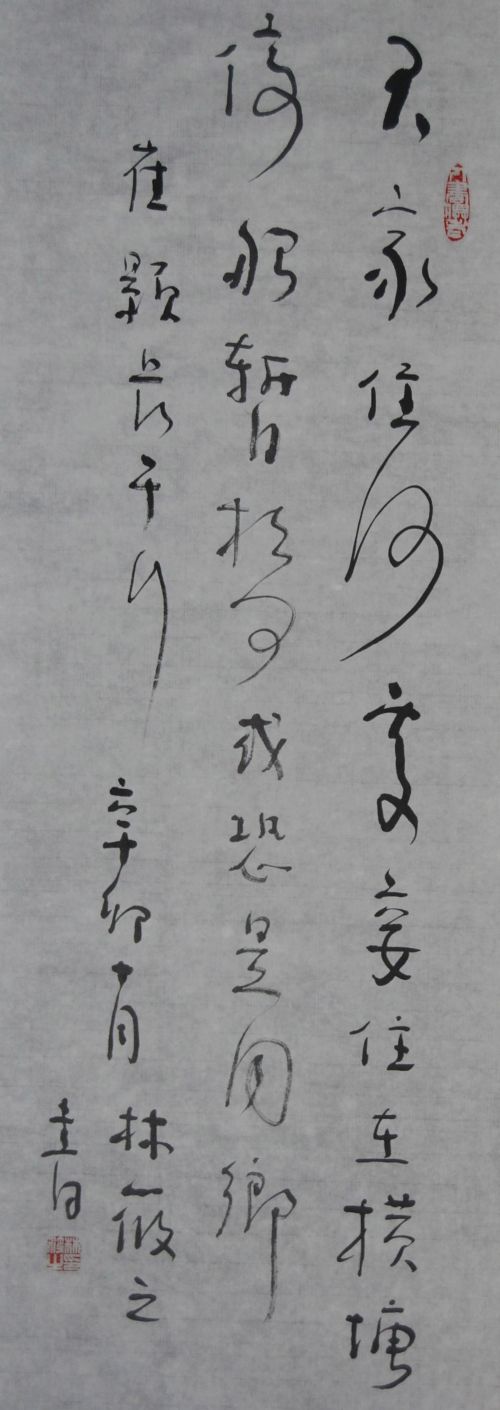 君家住何處妾住在橫塘
停船暫借問或恐是同鄉
崔顥長干行 辛卯十月 林筱之